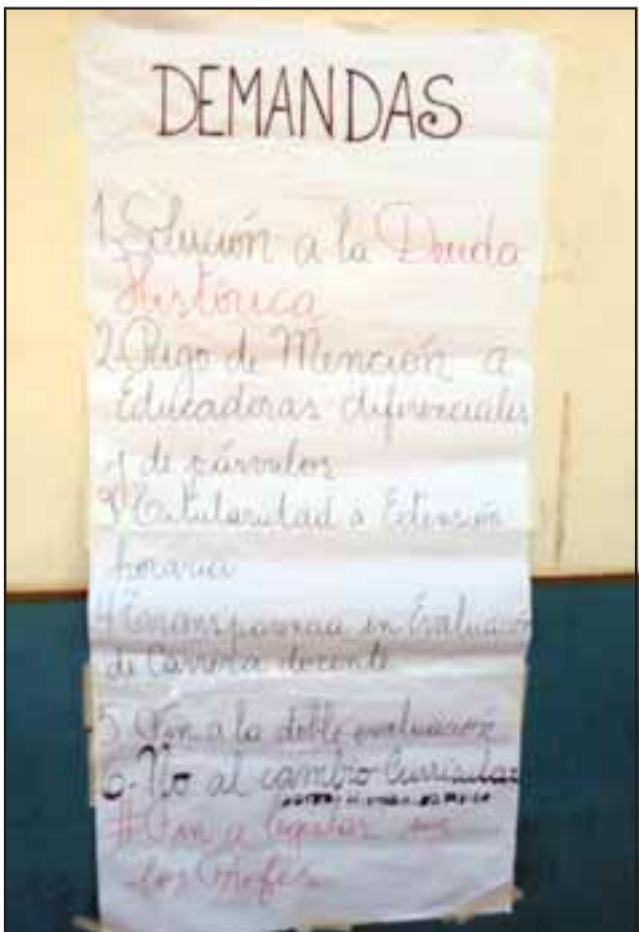 DEMANDAS
1. Solución a la Deuda
Histórica
2. Pago de Mención a
Educadoras diferenciales
y de párvulos
3. Titularidad a Extensión
horaria
4. Transparencia en Evaluación
de Carrera docente
5. Fin a la doble evaluación
6. No al cambio Curricular
los Profes